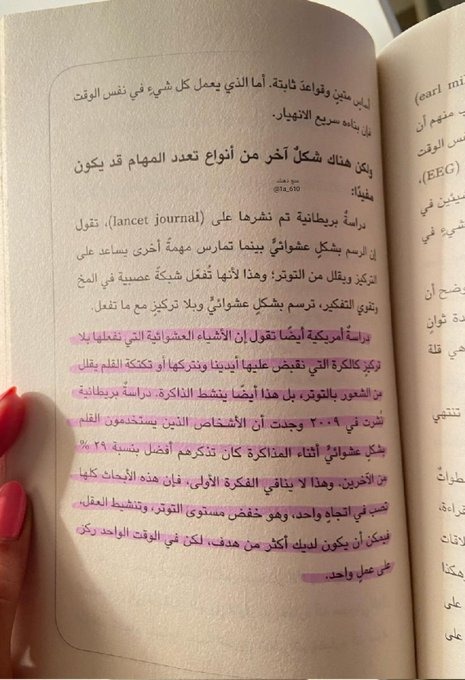 أساسٍ متينٍ وقواعدَ ثابتة. أما الذي يعمل كل شيءٍ في نفس الوقت
فإن بناءه سريع الانهيار.
ولكن هناك شكلٌ آخر من أنواع تعدد المهام قد يكون
مفيدًا:
متع ذهنك
@1a_610
دراسةٌ بريطانية تم نشرها على (lancet journal)، تقول
إن الرسم بشكلٍ عشوائيٍّ بينما تمارس مهمةً أخرى يساعد على
التركيز ويقلل من التوتر؛ وهذا لأنها تُفعّل شبكةً عصبية في المخ
وتقوي التفكير، ترسم بشكلٍ عشوائيٍّ وبلا تركيزٍ مع ما تفعل.
دراسةٌ أمريكية أيضًا تقول إن الأشياء العشوائية التي نفعلها بلا
تركيزٍ كالكرة التي نقبض عليها أيدينا ونتركها أو تكتكة القلم يقلل
من الشعور بالتوتر، بل هذا أيضًا ينشط الذاكرة. دراسةٌ بريطانية
نُشرت في ٢٠٠٩ وجدت أن الأشخاص الذين يستخدمون القلم
بشكلٍ عشوائيٍّ أثناء المذاكرة كان تذكرهم أفضل بنسبة ٢٩ %
من الآخرين. وهذا لا ينافي الفكرة الأولى، فإن هذه الأبحاث كلها
تصب في اتجاهٍ واحد، وهو خفض مستوى التوتر، وتنشيط العقل،
فيمكن أن يكون لديك أكثر من هدف، لكن في الوقت الواحد ركز
على عملٍ واحد.
(earl mi
ب منهم أن
فس الوقت
(EEG)،
شيئين في
شيءٍ في
وضح أن
دة ثوانٍ
هي قلة
تنتهي
طواتٌ
راءة،
لاقات
هكذا
على
على